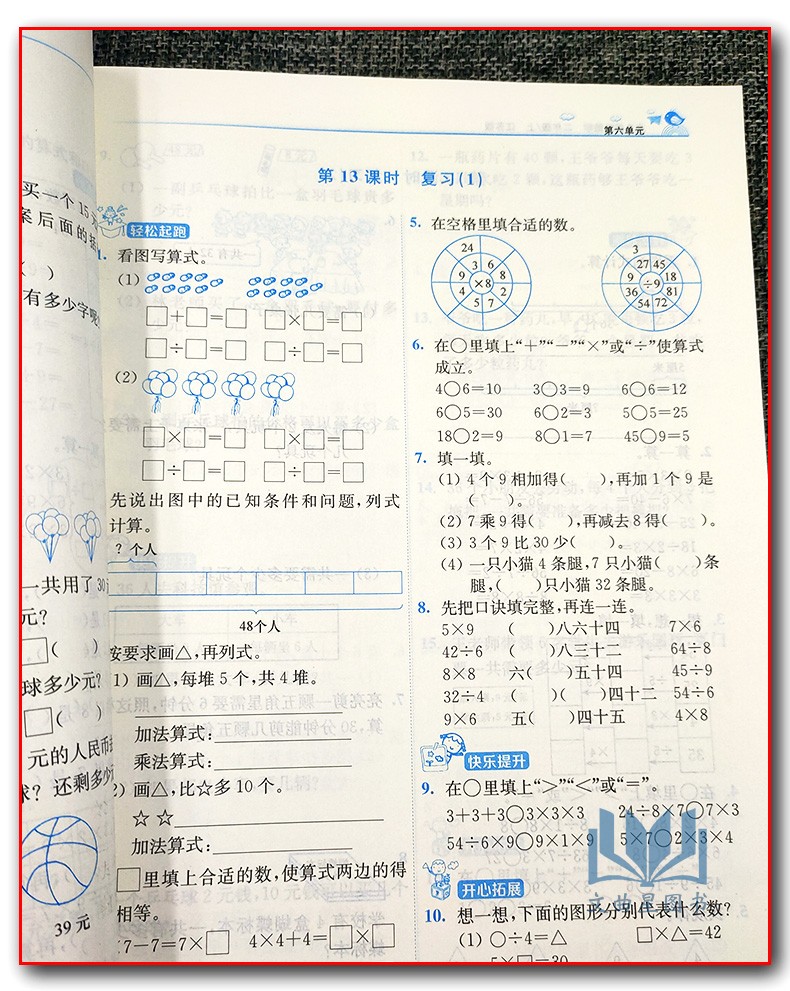 第六单元
第 13 课时 复习(1)
买一个 15 元
案后面的括
( )
有多少字呢
一共用了 30
元?
□( )
球多少元?
□( )
元的人民币
球? 还剩多少
39 元
轻松起跑
1. 看图写算式。
(1)
□+□=□ □×□=□
□÷□=□ □÷□=□
(2)
□×□=□ □×□=□
□÷□=□ □÷□=□
先说出图中的已知条件和问题,列式
计算。
? 个人
48个人
按要求画△,再列式。
1) 画△,每堆 5 个,共 4 堆。
加法算式:
乘法算式:
2) 画△,比☆多 10 个。
☆ ☆
加法算式:
□里填上合适的数,使算式两边的得
相等。
7-7=7×□ 4×4+4=□×□
5. 在空格里填合适的数。
24
9 3 6 8
6 ×8 2
4 5 7
3
27 45
9 ÷9 18
36 81
54 72
6. 在○里填上“+”“-”“×”或“÷”使算式
成立。
4○6=10 3○3=9 6○6=12
6○5=30 6○2=3 5○5=25
18○2=9 8○1=7 45○9=5
7. 填一填。
(1) 4 个 9 相加得( ),再加 1 个 9 是
( )。
(2) 7 乘 9 得( ),再减去 8 得( )。
(3) 3 个 9 比 30 少( )。
(4) 一只小猫 4 条腿,7 只小猫( )条
腿,( )只小猫 32 条腿。
8. 先把口诀填完整,再连一连。
5×9 ( )八六十四 7×6
42÷6 ( )八三十二 64÷8
8×8 六( )五十四 45÷9
32÷4 ( )( )四十二 54÷6
9×6 五( )四十五 4×8
快乐提升
9. 在○里填上“>”“<”或“=”。
3+3+3○3×3×3 24÷8×7○7×3
54÷6×9○9×1×9 5×7○2×3×4
开心拓展
10. 想一想,下面的图形分别代表什么数?
(1) ○÷4=△ □×△=42
5×□=30
文曲星图书